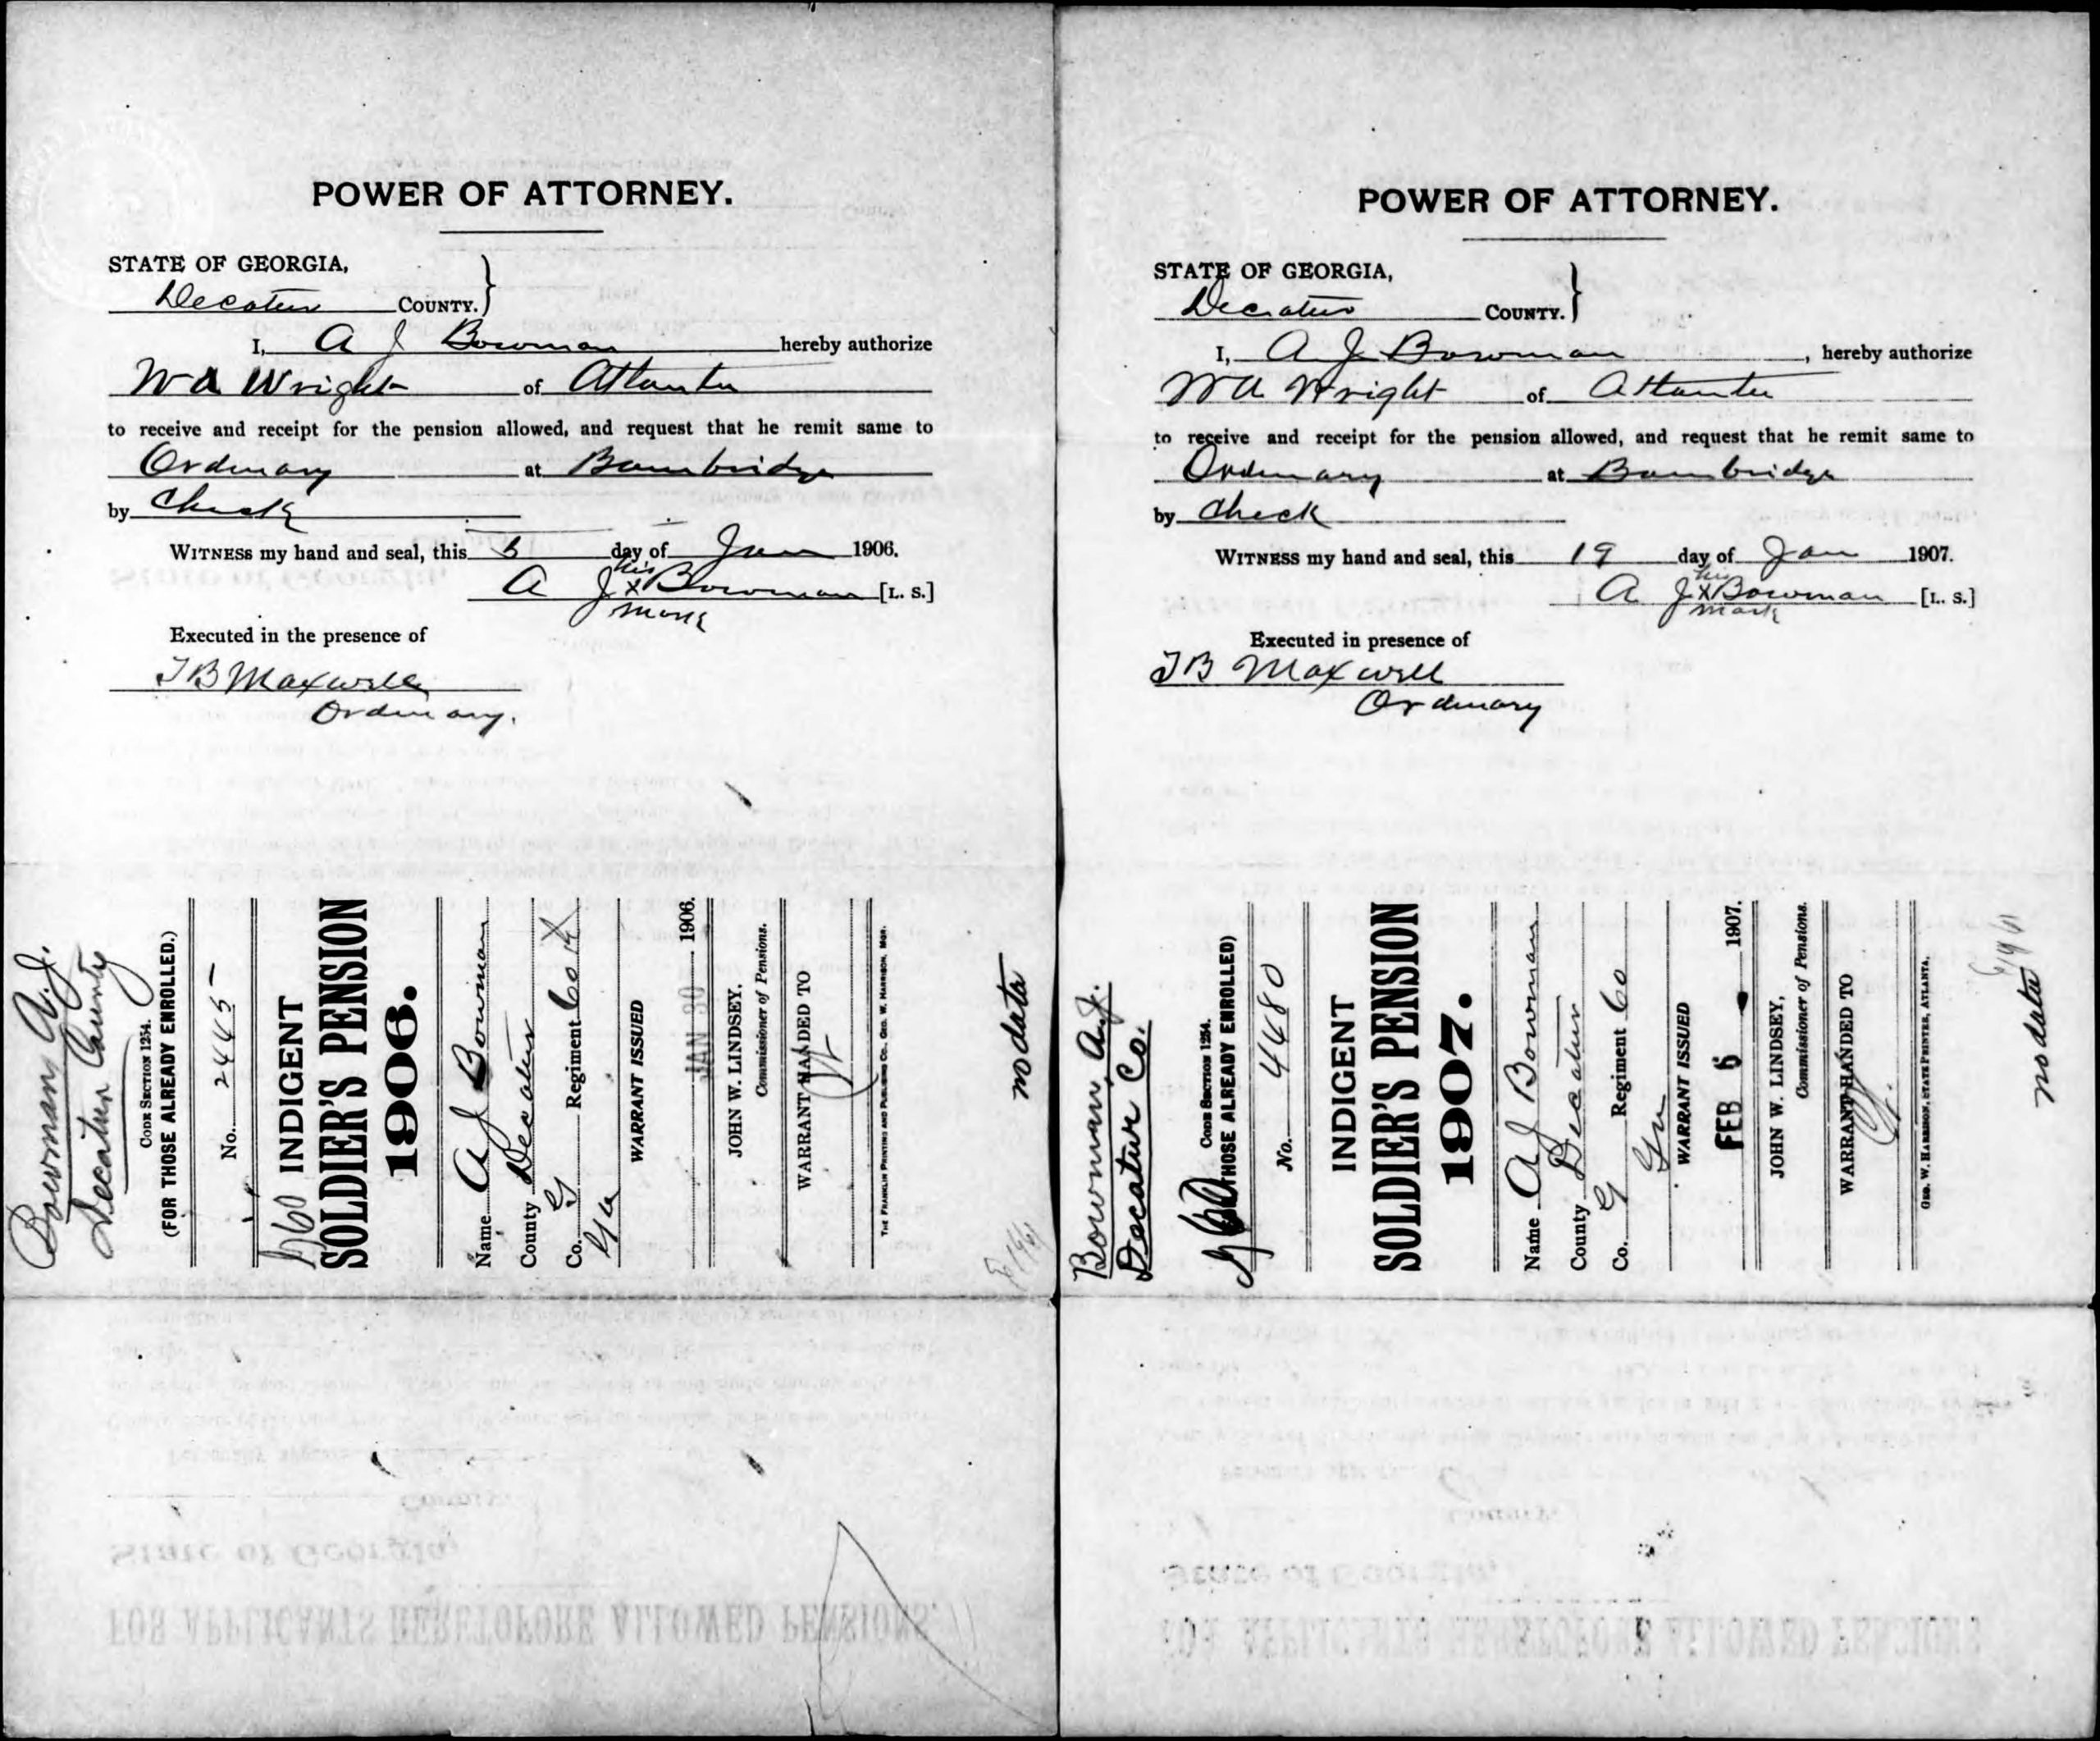 POWER OF ATTORNEY.
STATE OF GEORGIA,
Decatur COUNTY.
I, A J Bowman hereby authorize
W A Wright of Atlanta
to receive and receipt for the pension allowed, and request that he remit same to
Ordinary at Bainbridge
by Check
WITNESS my hand and seal, this 5 day of Jan 1906.
his
A J x Bowman [L. S.]
mark
Executed in the presence of
T B Maxwell
Ordinary.
Bowman, A. J.
Decatur County
CODE SECTION 1254.
(FOR THOSE ALREADY ENROLLED.)
No. 2445
INDIGENT
SOLDIER'S PENSION
1906.
Name A J Bowman
County Decatur
Co. G Regiment 60
Ga
WARRANT ISSUED
JAN 30 1906.
JOHN W. LINDSEY,
Commissioner of Pensions.
WARRANT HANDED TO
THE FRANKLIN PRINTING AND PUBLISHING CO. GEO. W. HARRISON, MGR.
no data
POWER OF ATTORNEY.
STATE OF GEORGIA,
Decatur COUNTY.
I, A. J. Bowman, hereby authorize
W A Wright of Atlanta
to receive and receipt for the pension allowed, and request that he remit same to
Ordinary at Bainbridge
by Check
WITNESS my hand and seal, this 19 day of Jan 1907.
his
A J x Bowman [L. S.]
mark
Executed in presence of
T B Maxwell
Ordinary
Bowman, A. J.
Decatur Co.
CODE SECTION 1254.
THOSE ALREADY ENROLLED)
No. 4480
INDIGENT
SOLDIER'S PENSION
1907.
Name A J Bowman
County Decatur
Co. G Regiment 60
Ga
WARRANT ISSUED
FEB 5 1907.
JOHN W. LINDSEY,
Commissioner of Pensions.
WARRANT HANDED TO
GEO. W. HARRISON, STATE PRINTER, ATLANTA.
no data